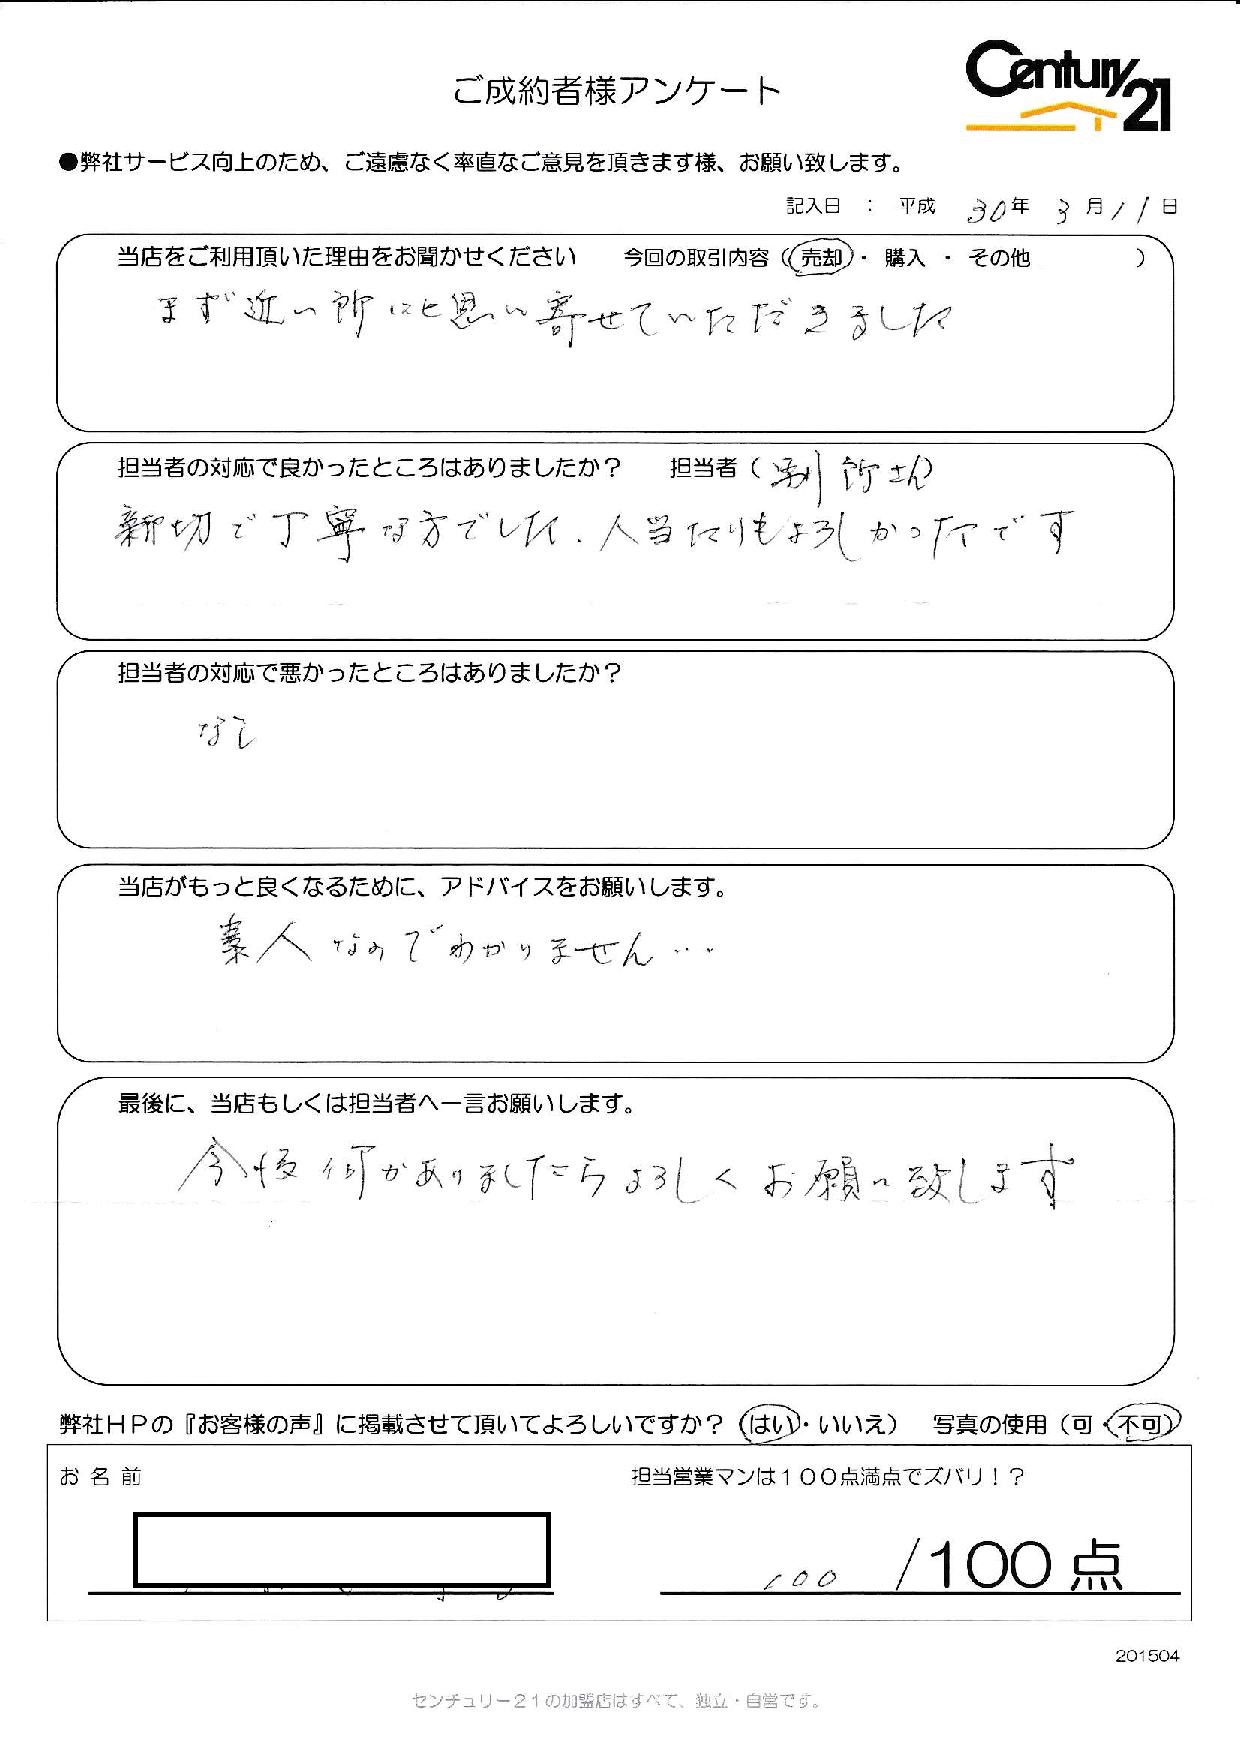 Century 21
ご成約者様アンケート
●弊社サービス向上のため、ご遠慮なく率直なご意見を頂きます様、お願い致します。
記入日 ： 平成 30年 3月11日
当店をご利用頂いた理由をお聞かせください 今回の取引内容（売却・購入・その他 ）
まず近い所にと思い寄せていただきました
担当者の対応で良かったところはありましたか？ 担当者（別所さん）
親切で丁寧な方でした、人当たりもよろしかったです
担当者の対応で悪かったところはありましたか？
なし
当店がもっと良くなるために、アドバイスをお願いします。
素人なのでわかりません…
最後に、当店もしくは担当者へ一言お願いします。
今後何かありましたらよろしくお願い致します
弊社ＨＰの『お客様の声』に掲載させて頂いてよろしいですか？（はい・いいえ） 写真の使用（可・不可）
お名前 担当営業マンは１００点満点でズバリ！？
100 /100点
201504
センチュリー２１の加盟店はすべて、独立・自営です。